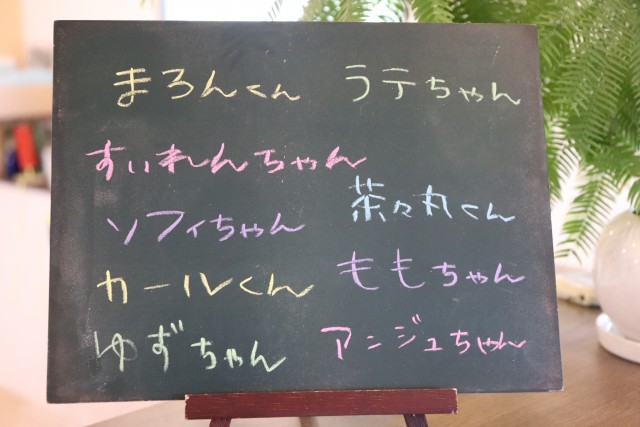 まろんくん
ラテちゃん
すいれんちゃん
茶々丸くん
ソフィちゃん
ももちゃん
カールくん
アンジュちゃん
ゆずちゃん